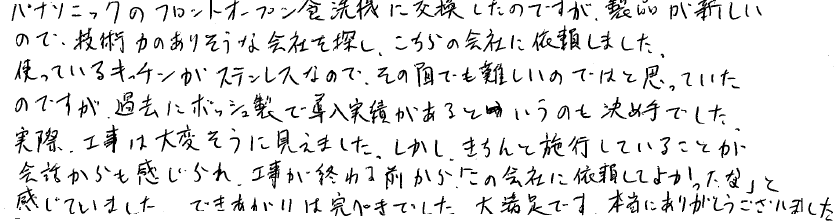 パナソニックのフロントオープン食洗機に交換したのですが、製品が新しい
ので、技術力のありそうな会社を探し、こちらの会社に依頼しました。
使っているキッチンがステンレスなので、その面でも難しいのではと思っていた
のですが、過去にボッシュ製で導入実績があるというのも決め手でした。
実際、工事は大変そうに見えました。しかし、きちんと施行していることが
会話からも感じられ、工事が終わる前から「この会社に依頼してよかったな」と
感じていました。できあがりは完ぺきでした。大満足です。本当にありがとうございました